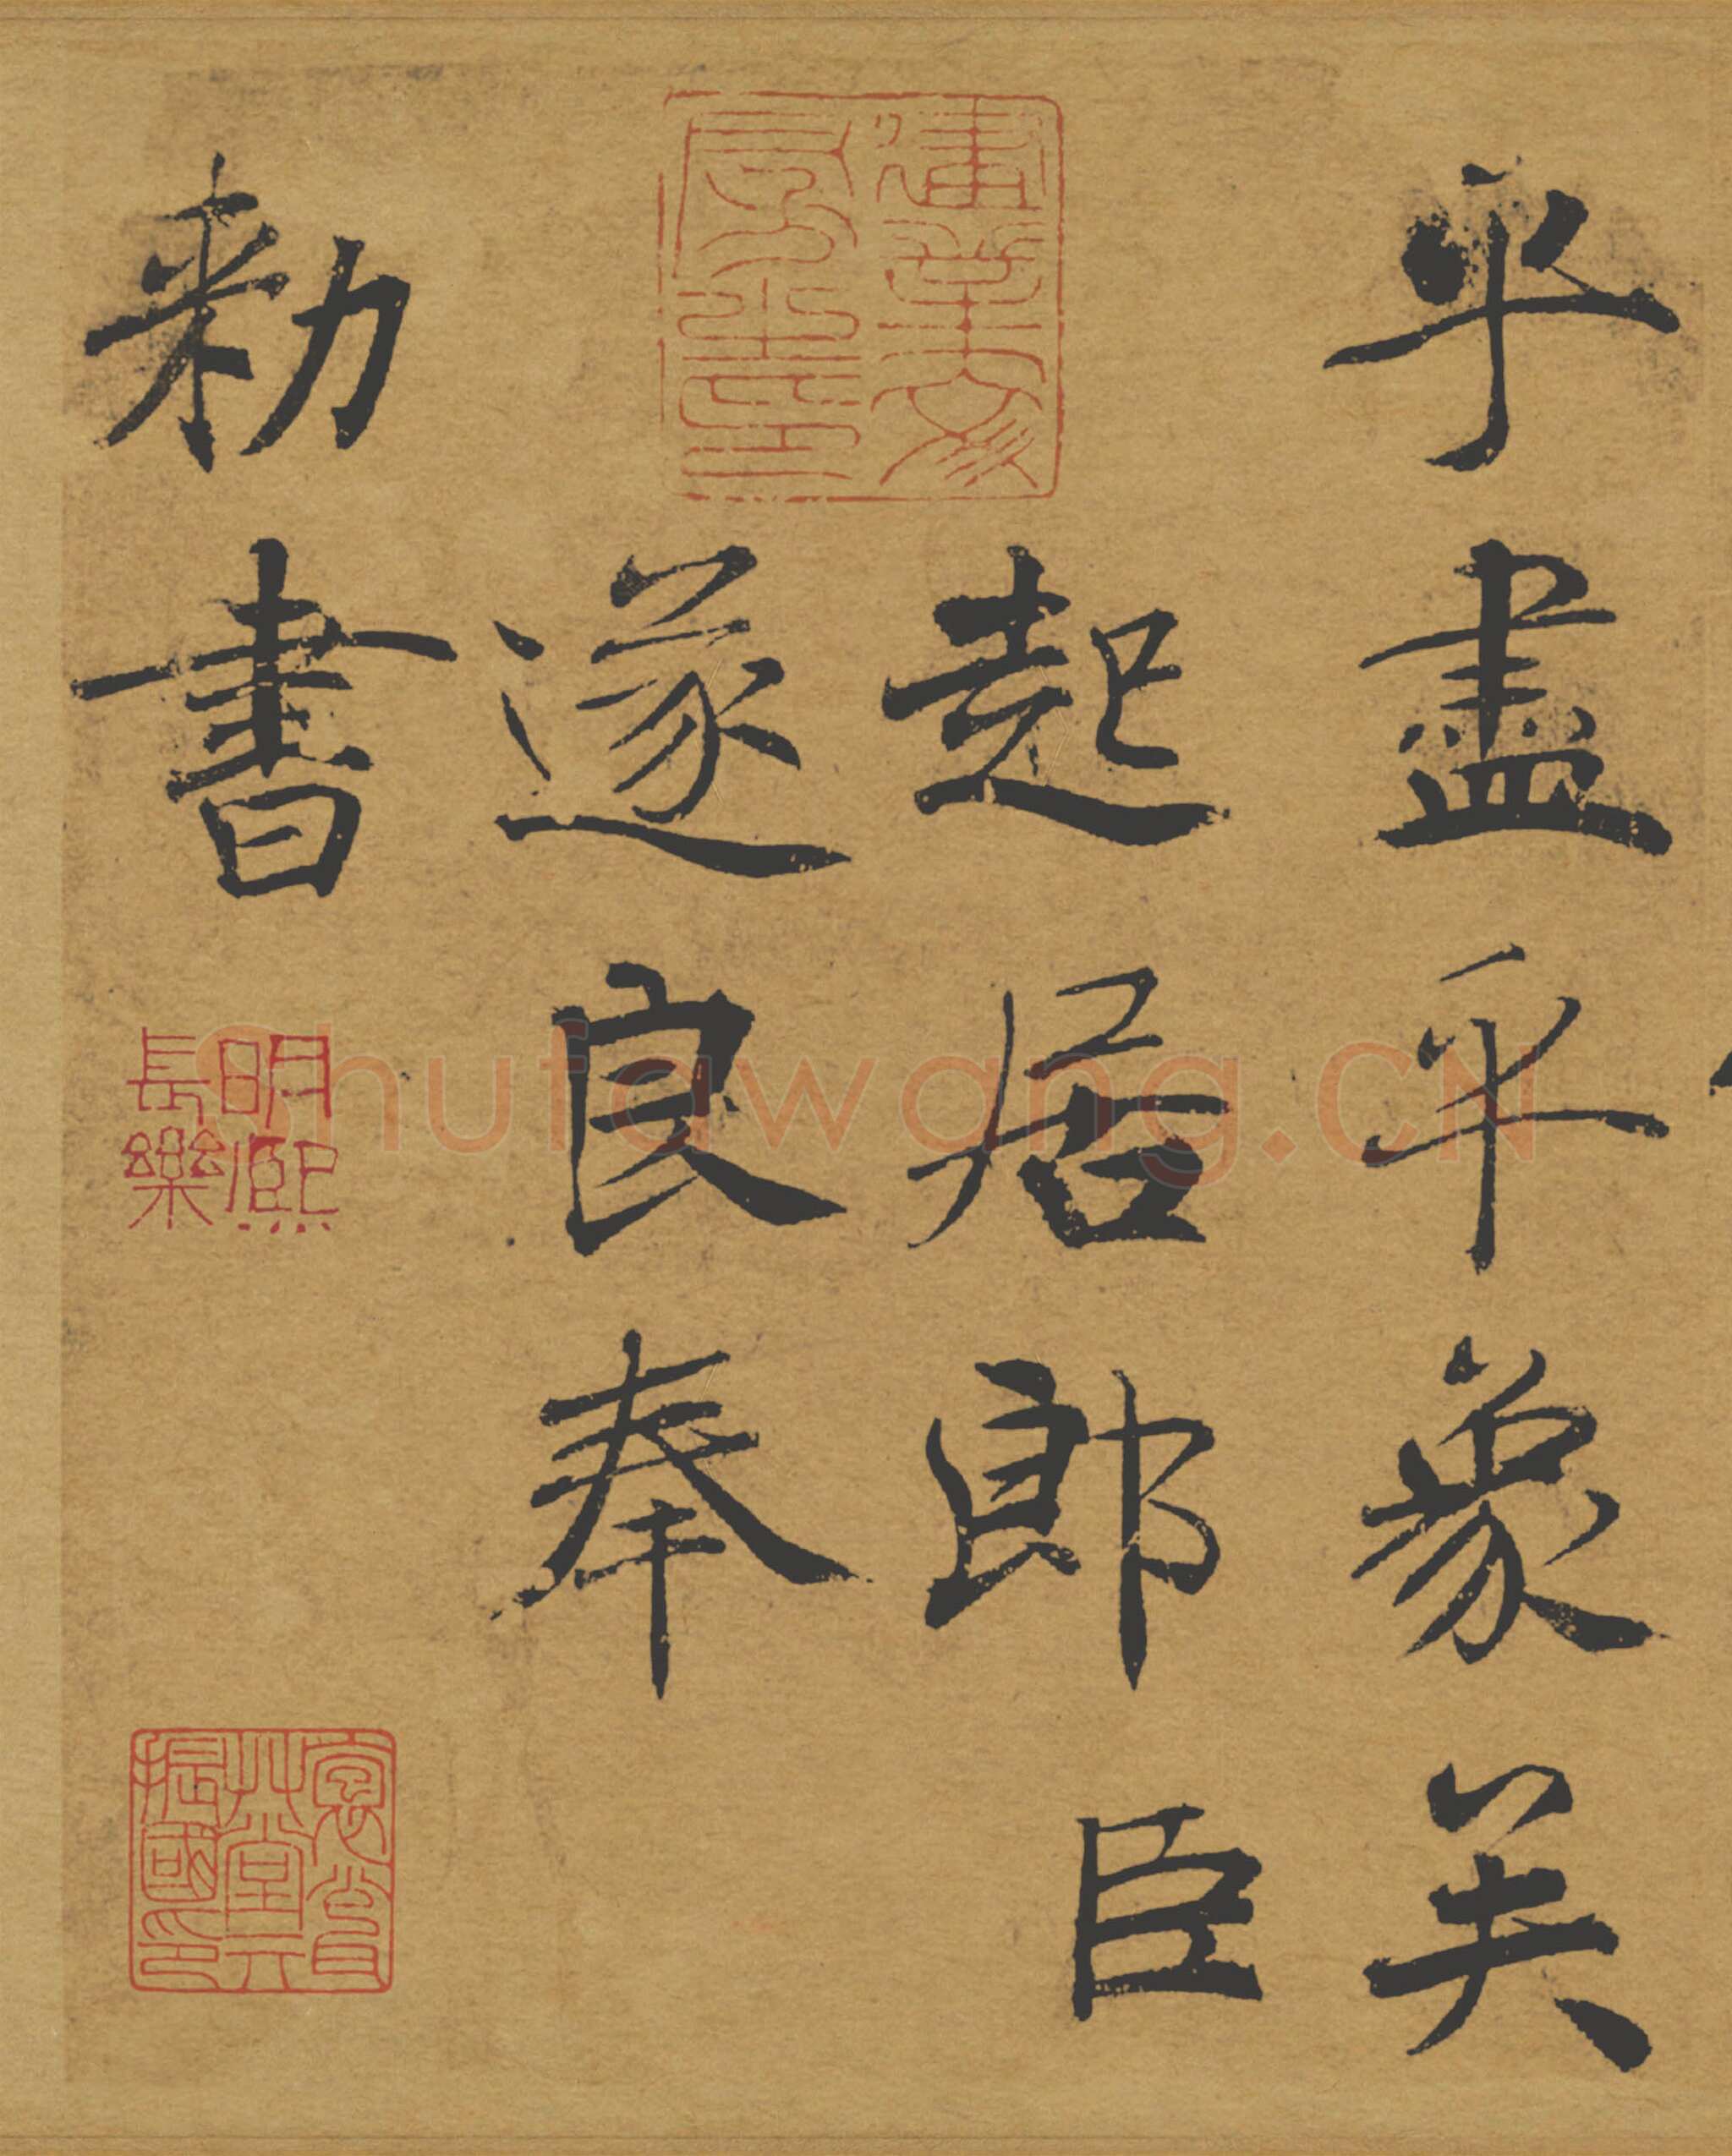 乎盡乎象矣
起居郎臣
遂良奉
勑書
建業文房之印
明熙長樂
Shufawang.CN